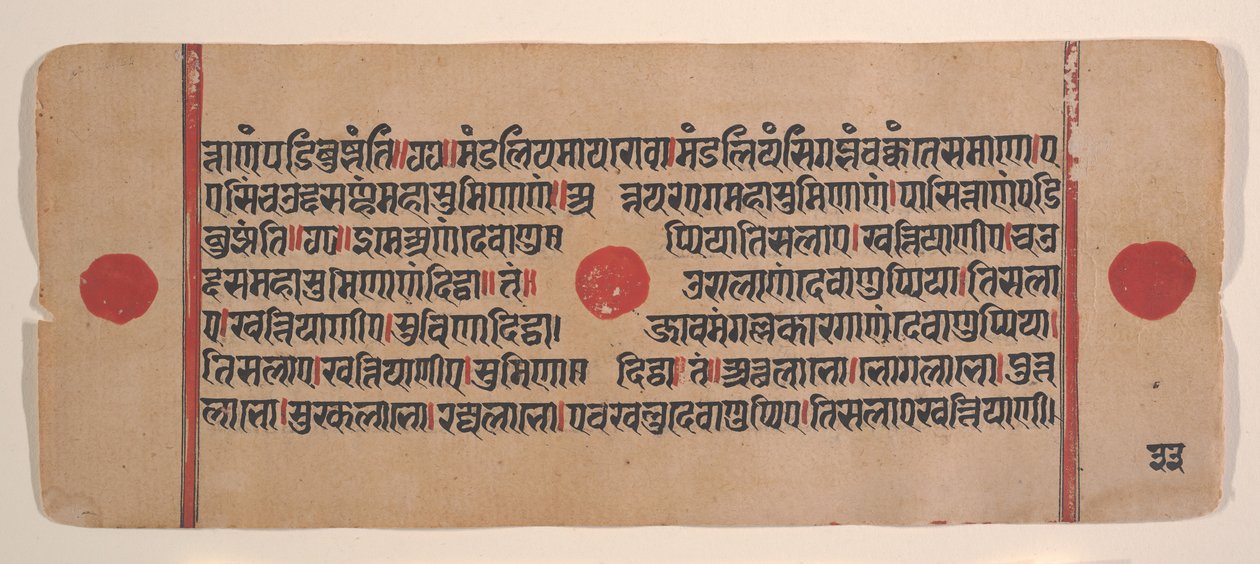 त्ताणंपडिबुज्झंति॥७७॥मंडलियमायरोवा।मंडलियंसिगब्भंवक्कंतेसमाणे।ए
एसिंचउद्दसण्हंमहासुमिणाणं॥अन्नयरंएगंमहासुमिणाणं।पासित्ताणंपडि
बुज्झंति॥७८॥इमेअणंदेवाणुप्पियातिसलाए।खत्तियाणीए।चउ
द्दसमहासुमिणाणंदिट्ठा॥तं॥उरालाणंदेवाणुप्पिया।तिसला
ए।खत्तियाणीए।सुविणादिट्ठा।जावमंगल्लकारगाणंदेवाणुप्पिया।
तिसलाए।खत्तियाणीए।सुमिणादिट्ठा॥तं॥अत्थलाभो।भोगलाभो।पुत्त
लाभो।सुक्खलाभो।रज्जलाभो।एवंखलुदेवाणुप्पिए।तिसलाएखत्तियाणी।
३३